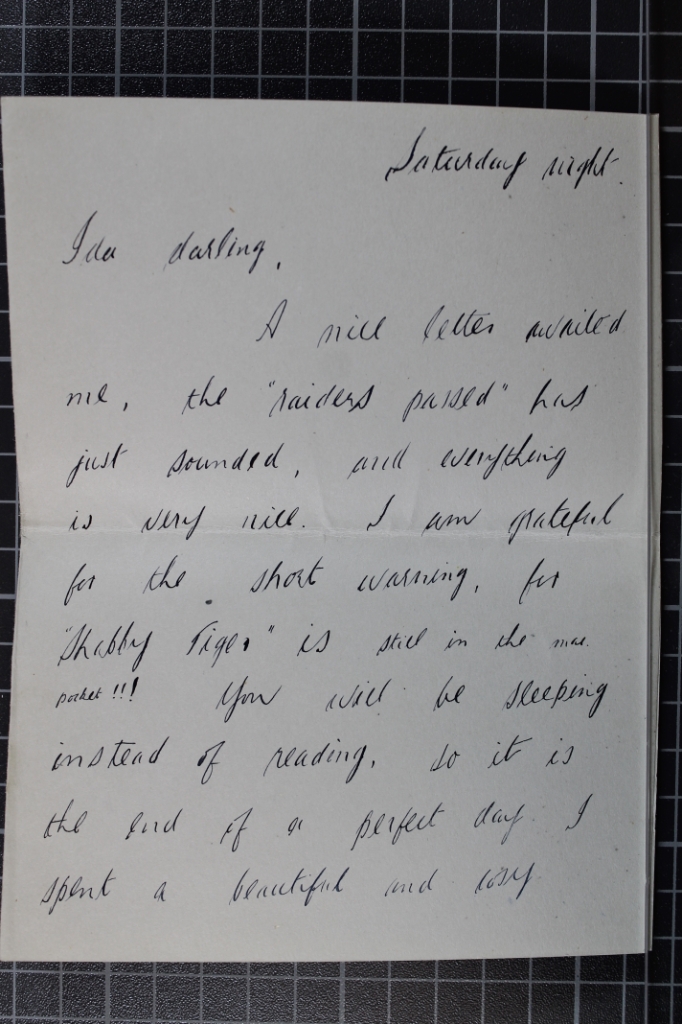 Saturday night.
Ida darling,
A nice letter awaited
me, the "raiders passed" has
just sounded, and everything
is very nice. I am grateful
for the short warning, for
"Shabby Tiger" is still in the mac.
pocket!!! You will be sleeping
instead of reading, so it is
the end of a perfect day. I
spent a beautiful and cosy